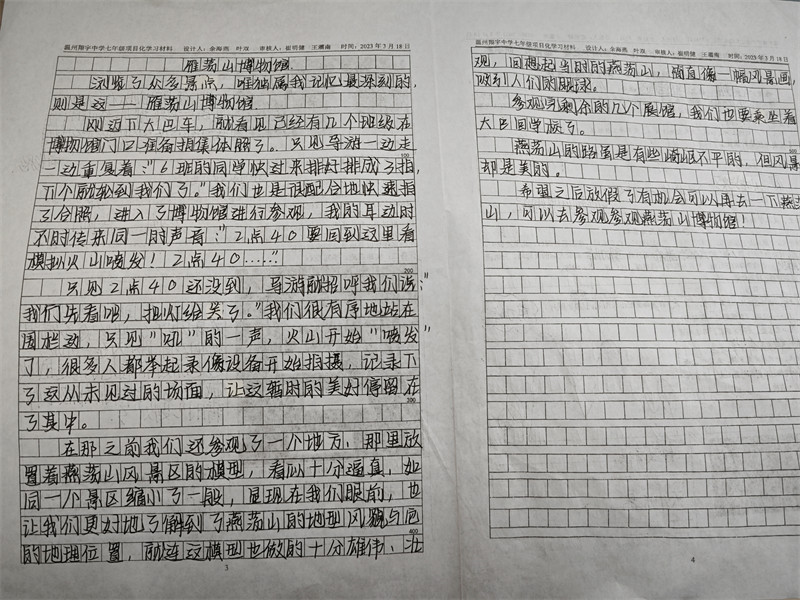 温州翔宇中学七年级项目化学习材料 设计人：余海燕 叶双 审核人：崔明健 王珊南 时间：2023年3月18日
雁荡山博物馆
浏览了众多景点，唯独属我记忆最深刻的，
则是这——雁荡山博物馆
刚迈下大巴车，就看见已经有几个班级在
博物馆门口准备拍集体照了。只见导游一动走
一动重复着："6班的同学快过来排好排成3排，
下个就轮到我们了。"我们也是很配合地快速拍
了合照，进入了博物馆进行参观，我的耳边时
不时传来同一的声音："2点40要回到这里看
模拟火山喷发！2点40……"
200
只见2点40还没到，导游就招呼我们说："
我们先看吧，把灯给关了。"我们很有序地站在
围栏边，只见"吼"的一声，火山开始"喷发"
了，很多人都举起录像设备开始拍摄，记录下
了这从未见过的场面，让这暂时的美好停留在
300
了其中。
在那之前我们还参观了一个地方，那里放
置着燕荡山风景区的模型，看似十分逼真，如
同一个景区缩小了一般，显现在我们眼前，也
让我们更好地了解到了燕荡山的地型风貌与它
400
的地理位置，就连这模型也做的十分雄伟、壮
3
温州翔宇中学七年级项目化学习材料 设计人：余海燕 叶双 审核人：崔明健 王珊南 时间：2023年3月18日
观，回想起当时的燕荡山，简直像一幅风景画，
吸引人们的眼球。
参观完剩余的几个展馆，我们也要乘坐着
大巴回学校了。
燕荡山的路虽是有些崎岖不平的，但风景
却是美的。
希望之后放假了有机会可以再去一下燕荡
山，可以去参观参观燕荡山博物馆！
4